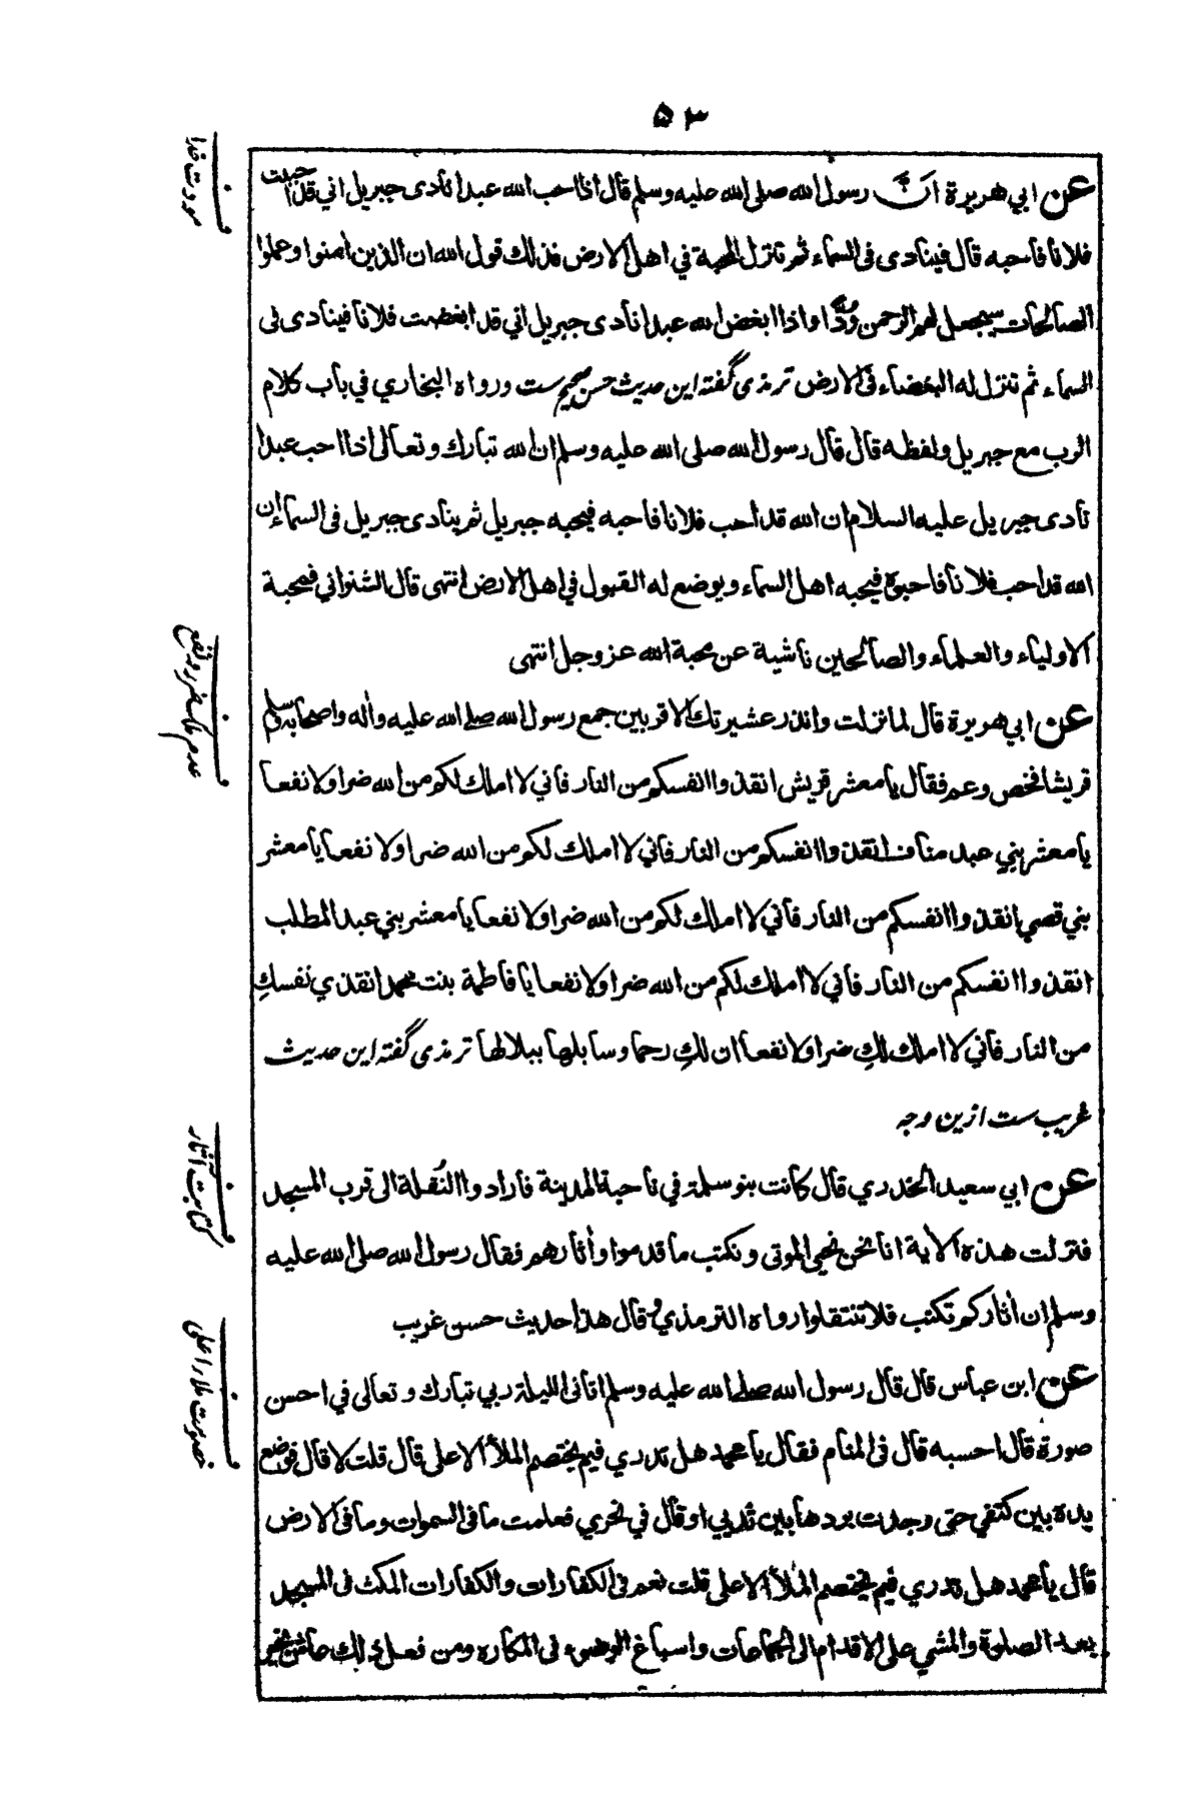 ۵۳
عن ابي هريرة انّ رسول الله صلى الله عليه وسلم قال اذا احب الله عبدا نادى جبريل اني قد احببت
فلانا فاحبه قال فينادى فى السماء ثم تنزل المحبة في اهل الارض فذلك قول الله ان الذين امنوا وعملوا
الصالحات سيجعل لهم الرحمن ودّا واذا ابغض الله عبدا نادى جبريل اني قد ابغضت فلانا فينادى فى
السماء ثم تنزل له البغضاء فى الارض ترمذى گفته اين حديث حسن صحيح ست ورواه البخاري في باب كلام
الرب مع جبريل ولفظه قال قال رسول الله صلى الله عليه وسلم ان الله تبارك وتعالى اذا احب عبدا
نادى جبريل عليه السلام ان الله قد احب فلانا فاحبه فيحبه جبريل ثم ينادى جبريل فى السماء إن
الله قد احب فلانا فاحبوه فيحبه اهل السماء ويوضع له القبول في اهل الارض انتهى قال الشنواني فمحبة
الاولياء والعلماء والصالحين ناشية عن محبة الله عز وجل انتهى
عن ابي هريرة قال لما نزلت وانذر عشيرتك الاقربين جمع رسول الله صلى الله عليه واله واصحابه وسلم
قريشا فخص وعم فقال يا معشر قريش انقذوا انفسكم من النار فاني لا املك لكم من الله ضرا ولا نفعا
يا معشر بني عبد مناف انقذوا انفسكم من النار فاني لا املك لكم من الله ضرا ولا نفعا يا معشر
بني قصي انقذوا انفسكم من النار فاني لا املك لكم من الله ضرا ولا نفعا يا معشر بني عبد المطلب
انقذوا انفسكم من النار فاني لا املك لكم من الله ضرا ولا نفعا يا فاطمة بنت محمد انقذي نفسكِ
من النار فاني لا املك لكِ ضرا ولا نفعا ان لكِ رحما وسابلها ببلالها ترمذى گفته اين حديث
غريب ست ازين وجه
عن ابي سعيد الخدري قال كانت بنو سلمة في ناحية المدينة فارادوا النُقلة الى قرب المسجد
فنزلت هذه الاية انا نحن نحيي الموتى ونكتب ما قدموا وأثارهم فقال رسول الله صلى الله عليه
وسلم ان أثاركم تكتب فلا تنتقلوا رواه الترمذي وقال هذا حديث حسن غريب
عن ابن عباس قال قال رسول الله صلى الله عليه وسلم اتانى الليلة ربي تبارك وتعالى في احسن
صورة قال احسبه قال فى المنام فقال يا محمد هل تدري فيم يختصم الملأ الاعلى قال قلت لا قال فوضع
يده بين كتفي حتى وجدت بردها بين ثديي او قال في نحري فعلمت ما فى السموات وما فى الارض
قال يا محمد هل تدري فيم يختصم الملأ الاعلى قلت نعم فى الكفارات والكفارات المكث فى المسجد
بعد الصلوة والمشي على الاقدام الى الجماعات واسباغ الوضوء فى المكاره ومن فعل ذلك عاش بخير
ف مودت خدا
ف عدم ملك ضرر ونفع
ف كتابت آثار
ف خصومت ملاء اعلى